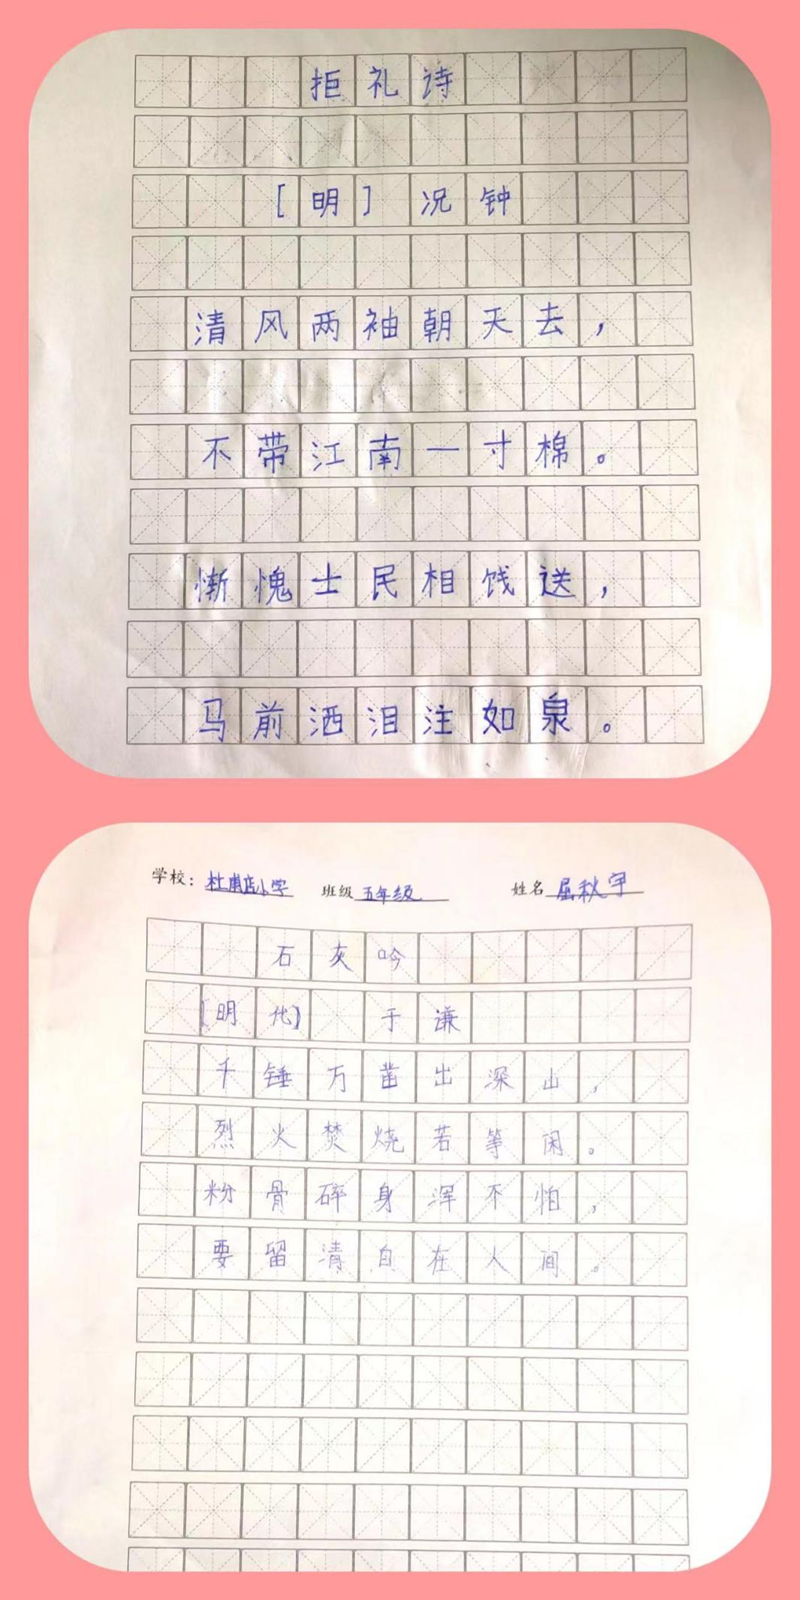 拒礼诗
[明] 况钟
清风两袖朝天去，
不带江南一寸棉。
惭愧士民相饯送，
马前洒泪注如泉。
学校：杜甫店小学 班级 五年级 姓名 屈秋宇
石灰吟
[明代] 于谦
千锤万凿出深山，
烈火焚烧若等闲。
粉骨碎身浑不怕，
要留清白在人间。